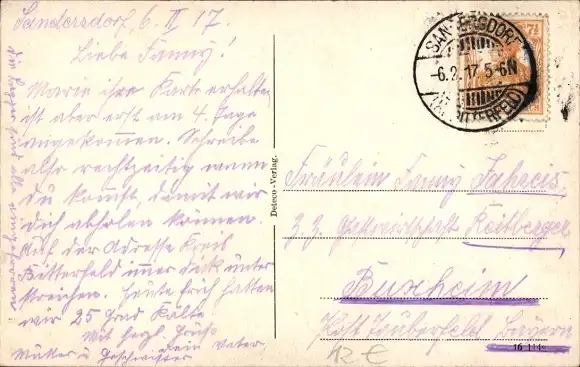 Sandersdorf, 6. II 17.
Liebe Fanny!
Marie ihre Karte erhalten
ist aber erst am 4. Tage
angekommen. Schreibe
aber rechtzeitig wann
Du kommst, damit wir
dich abholen können.
Auf der Adresse Kreis
Bitterfeld immer dick unter
streichen. Heute früh hatten
wir 25 Grad Kälte
Mit herzl. Gruß
Dein Vater
Mutter u Geschwister
SANDERSDORF
-6.2.17. 5-6N
(BITTERFELD)
7½
Deteco-Verlag.
Fräulein Fanny
z. Z. Gastwirtschaft Köilberger
Buxheim
Post Bayern
16 114
12 €